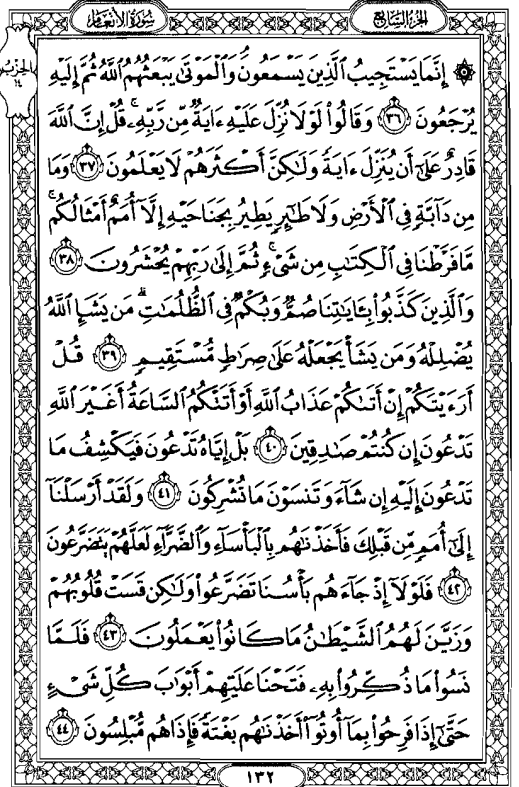 الجزء السابع
سورة الأنعام
الحزب
١٤
۞ إِنَّمَا يَسْتَجِيبُ ٱلَّذِينَ يَسْمَعُونَ وَٱلْمَوْتَىٰ يَبْعَثُهُمُ ٱللَّهُ ثُمَّ إِلَيْهِ
يُرْجَعُونَ ٣٦ وَقَالُوا۟ لَوْلَا نُزِّلَ عَلَيْهِ ءَايَةٌ مِّن رَّبِّهِۦ ۚ قُلْ إِنَّ ٱللَّهَ
قَادِرٌ عَلَىٰٓ أَن يُنَزِّلَ ءَايَةً وَلَـٰكِنَّ أَكْثَرَهُمْ لَا يَعْلَمُونَ ٣٧ وَمَا
مِن دَآبَّةٍ فِى ٱلْأَرْضِ وَلَا طَـٰٓئِرٍ يَطِيرُ بِجَنَاحَيْهِ إِلَّآ أُمَمٌ أَمْثَالُكُم ۚ
مَّا فَرَّطْنَا فِى ٱلْكِتَـٰبِ مِن شَىْءٍ ۚ ثُمَّ إِلَىٰ رَبِّهِمْ يُحْشَرُونَ ٣٨
وَٱلَّذِينَ كَذَّبُوا۟ بِـَٔايَـٰتِنَا صُمٌّ وَبُكْمٌ فِى ٱلظُّلُمَـٰتِ ۗ مَن يَشَإِ ٱللَّهُ
يُضْلِلْهُ وَمَن يَشَأْ يَجْعَلْهُ عَلَىٰ صِرَٰطٍ مُّسْتَقِيمٍ ٣٩ قُلْ
أَرَءَيْتَكُمْ إِنْ أَتَىٰكُمْ عَذَابُ ٱللَّهِ أَوْ أَتَتْكُمُ ٱلسَّاعَةُ أَغَيْرَ ٱللَّهِ
تَدْعُونَ إِن كُنتُمْ صَـٰدِقِينَ ٤٠ بَلْ إِيَّاهُ تَدْعُونَ فَيَكْشِفُ مَا
تَدْعُونَ إِلَيْهِ إِن شَآءَ وَتَنسَوْنَ مَا تُشْرِكُونَ ٤١ وَلَقَدْ أَرْسَلْنَآ
إِلَىٰٓ أُمَمٍ مِّن قَبْلِكَ فَأَخَذْنَـٰهُم بِٱلْبَأْسَآءِ وَٱلضَّرَّآءِ لَعَلَّهُمْ يَتَضَرَّعُونَ
٤٢ فَلَوْلَآ إِذْ جَآءَهُم بَأْسُنَا تَضَرَّعُوا۟ وَلَـٰكِن قَسَتْ قُلُوبُهُمْ
وَزَيَّنَ لَهُمُ ٱلشَّيْطَـٰنُ مَا كَانُوا۟ يَعْمَلُونَ ٤٣ فَلَمَّا
نَسُوا۟ مَا ذُكِّرُوا۟ بِهِۦ فَتَحْنَا عَلَيْهِمْ أَبْوَٰبَ كُلِّ شَىْءٍ
حَتَّىٰٓ إِذَا فَرِحُوا۟ بِمَآ أُوتُوٓا۟ أَخَذْنَـٰهُم بَغْتَةً فَإِذَا هُم مُّبْلِسُونَ ٤٤
١٣٢